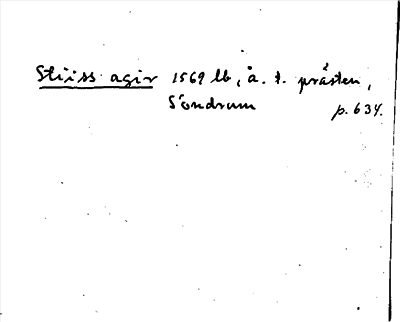 Stüss agir 1569 lb, å. t. prästen,
Söndrum p. 634.